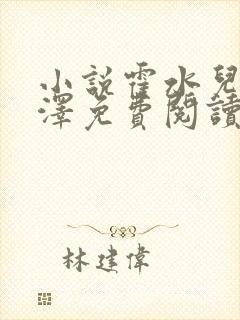 小說霍水兒
澤免費閱讀
林建偉